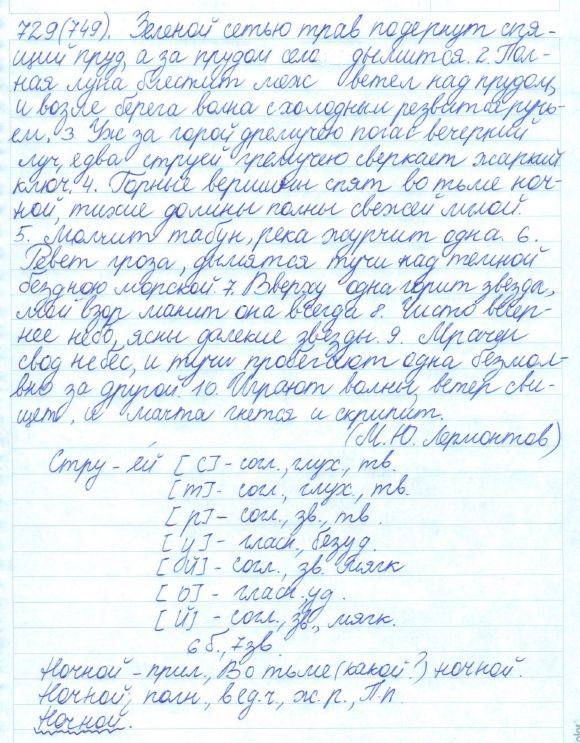 729(749). Зеленой сетью трав подернут спя-
щий пруд, а за прудом село дымится. 2. Пол-
ная луна блестит меж ветел над прудом,
и возле берега волна с холодным резвится ручь-
ем. 3 Уж за горой дремучею погас вечерний
луч, едва струей гремучею сверкает жаркий
ключ. 4. Горные вершины спят во тьме ноч-
ной, тихие долины полны свежей мглой.
5. Молчит табун, река журчит одна. 6.
Ревет гроза, дымятся тучи над темной
бездною морской. 7. Вверху одна горит звезда,
мой взор манит она всегда 8. Чисто вечер-
нее небо, ясны далекие звезды. 9. Мрачен
свод небес, и тучи пробегают одна безмол-
вно за другой. 10. Играют волны, ветер сви-
щет, и мачта гнется и скрипит.
(М.Ю. Лермонтов)
Стру-ей [с] - согл., глух., тв.
[т] - согл., глух., тв.
[р] - согл., зв., тв.
[у] - гласн., безуд.
[й] - согл., зв. мягк
- гласн., уд.
[й] - согл., зв., мягк.
6 б., 7 зв.
Ночной - прил., Во тьме (какой?) ночной.
Ночной, полн., в ед.ч., ж.р., П.п.
Ночной.